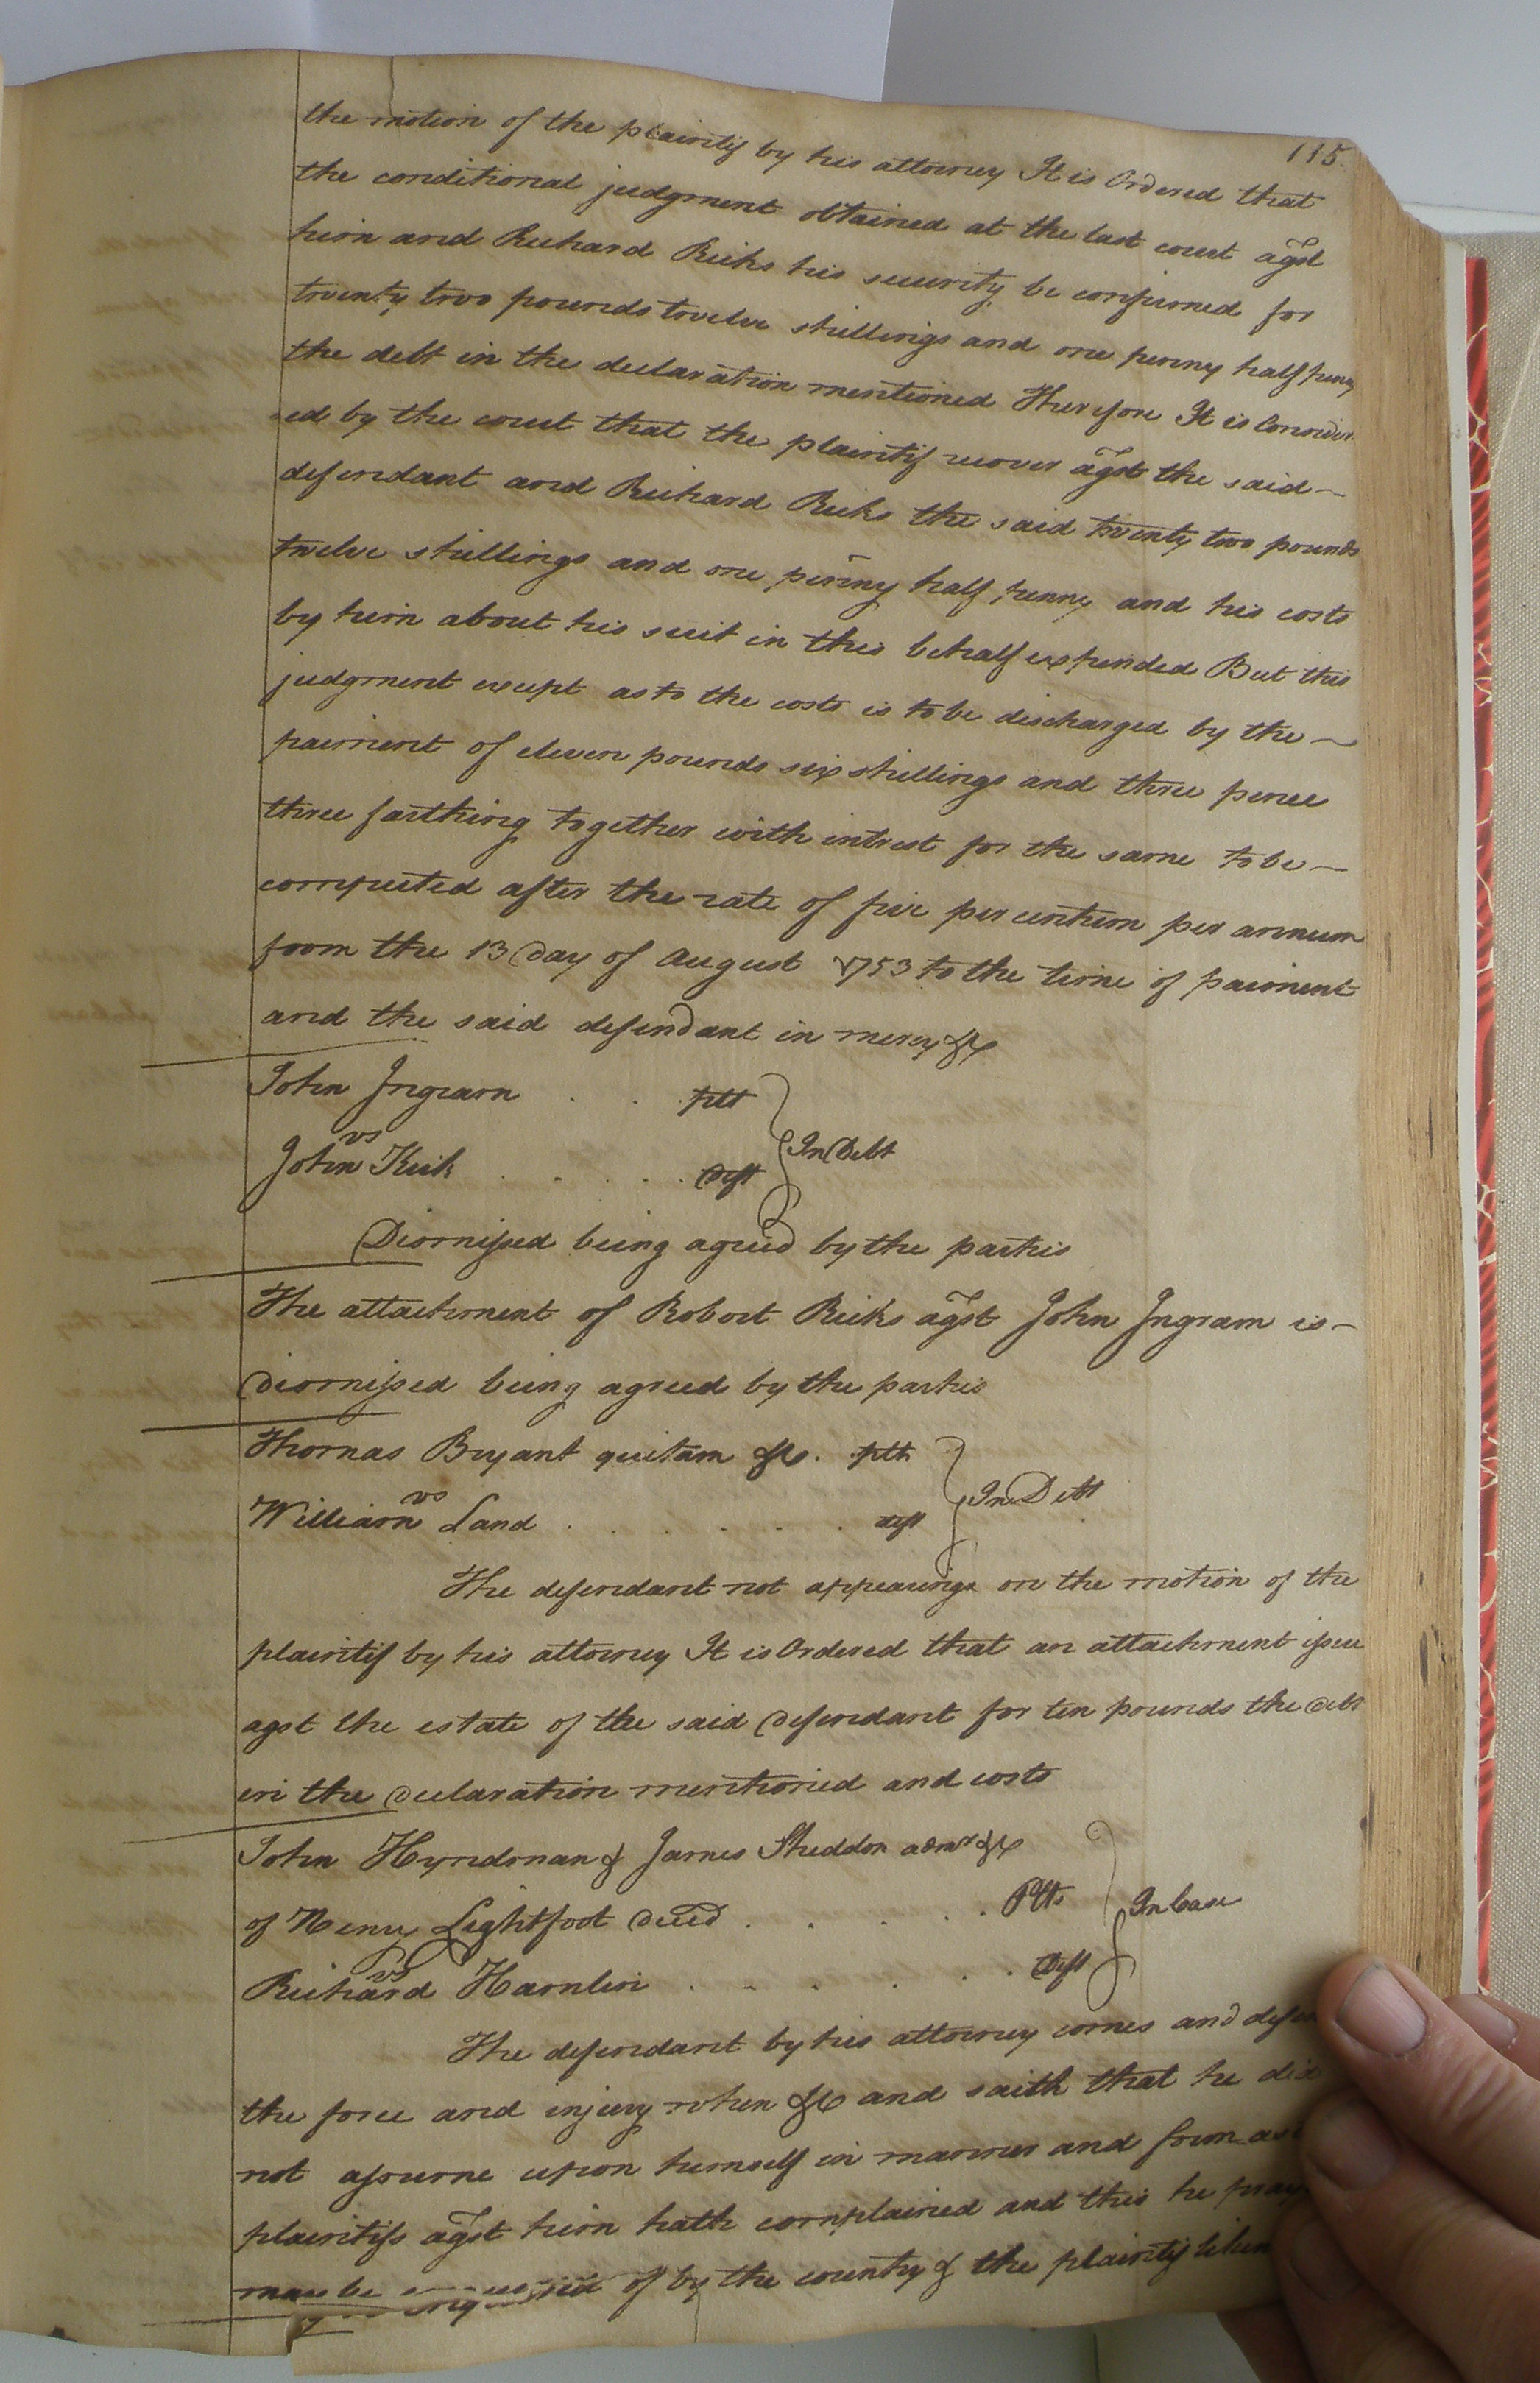 115.
the motion of the plaintif by his attorney It is Ordered that
the conditional judgment obtained at the last court agst
him and Richard Ricks his security be confirmed for
twenty two pounds twelve shillings and one penny half penny
the debt in the declaration mentioned Therefore It is Consider
=ed by the court that the plaintif recover agst the said
defendant and Richard Ricks the said twenty two pounds
twelve shillings and one penny half penny and his costs
by him about his suit in this behalf expended But this
judgment except as to the costs is to be discharged by the
paiment of eleven pounds six shillings and three pence
three farthing together with intrest for the same to be
computed after the rate of five per centum per annum
from the 13 Day of August 1753 to the time of paiment
and the said defendant in mercy &c
John Ingram . . . pltt
vs } In Debt
John Kirk . . . . . Deft
Dismissed being agreed by the parties
The attachment of Robert Ricks agst John Ingram is
dismissed being agreed by the parties
Thomas Bryant quitam &c. pltt
vs } In Debt
William Land . . . . . . deft
The defendant not appearing on the motion of the
plaintif by his attorney It is Ordered that an attachment issue
agst the estate of the said defendant for ten pounds the debt
in the declaration mentioned and costs
John Hyndman & James Sheddon admrs &c
of Henry Lightfoot decd . . . . . Plts } In Case
vs
Richard Hamlin . . . . . . Deft
The defendant by his attorney comes and
the force and injury when &c and saith that he did
not assume upon himself in manner and form as
plaintifs agst him hath complained and this he
may be of by the country & the plaintif